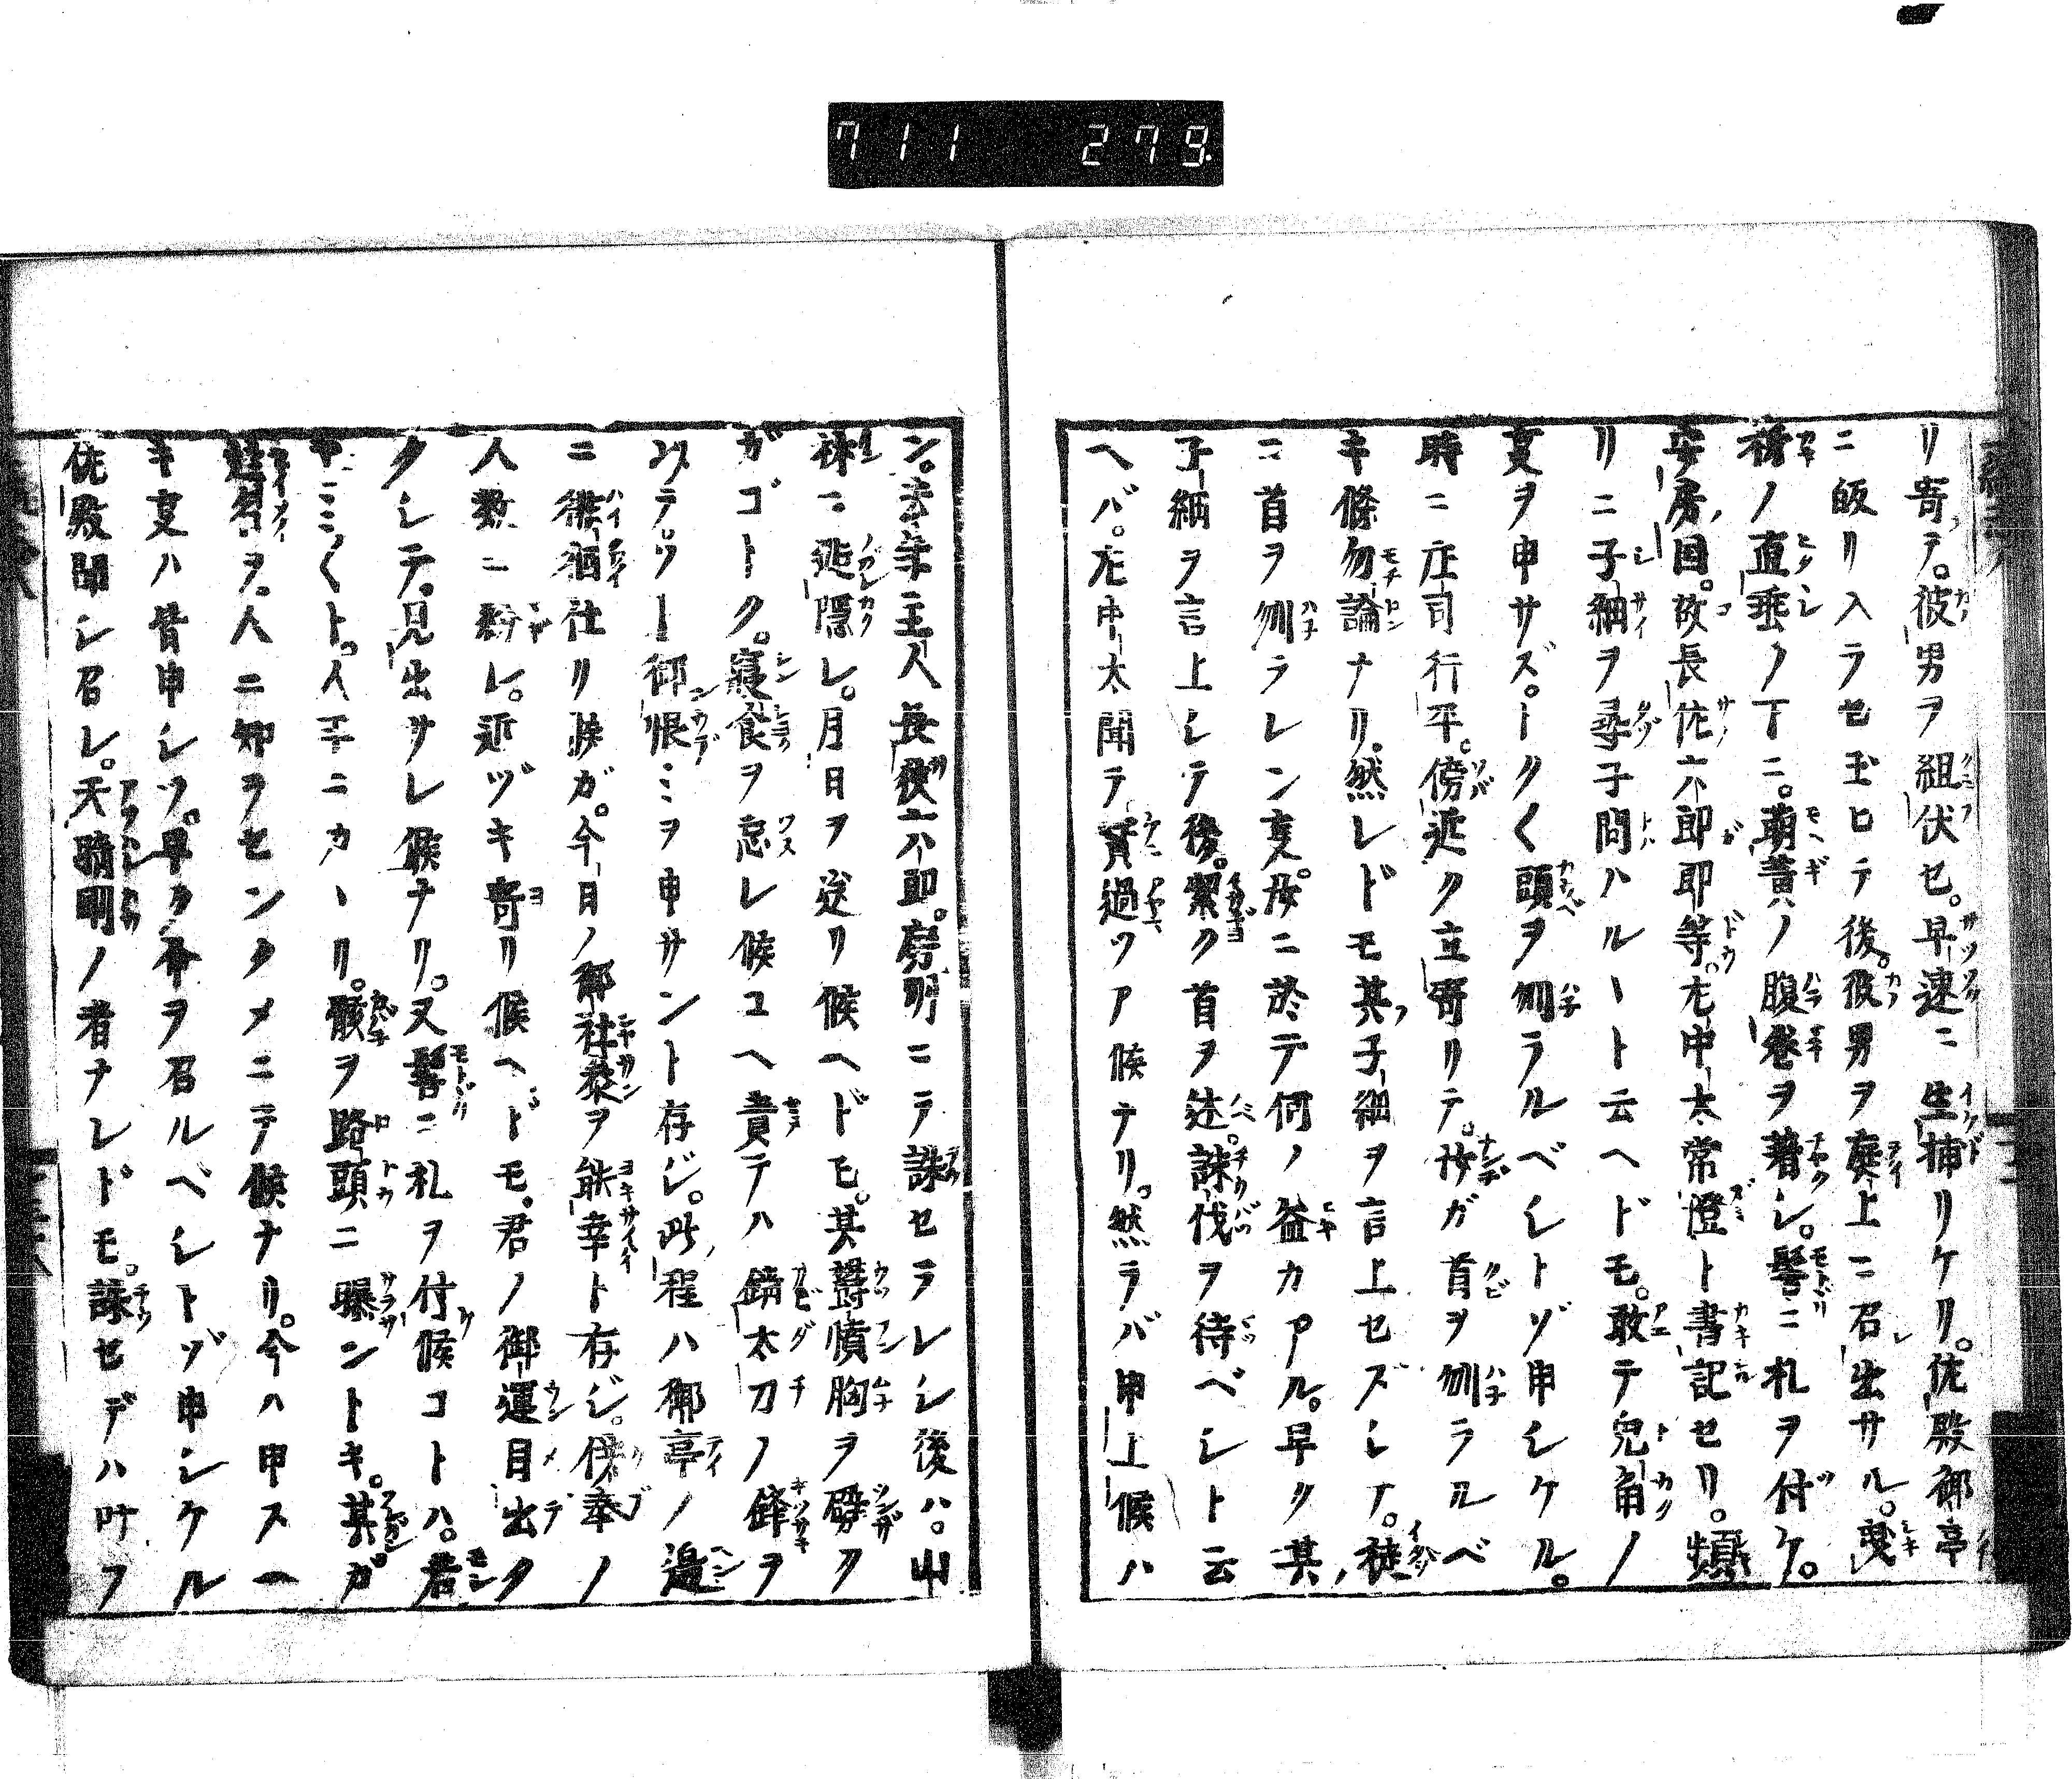 711 279.
リ寄テ。彼男ヲ組伏セ。早速ニ生捕リケリ。佐殿御亭
ニ皈リ入ラセ玉ヒテ後。彼男ヲ奥上ニ召出サル。
ノ直垂ノ下ニ。萌黄ノ腹巻ヲ著シ。髻ニ札ヲ付ケ。
安房国。故長佐六郎郎等。左中太常澄ト書記セリ。頻
リニ子細ヲ尋子問ハルヽト云ヘドモ。敢テ兎角ノ
叓ヲ申サズ。トク〳〵頭ヲ刎ラルベシトゾ申シケル。
時ニ庄司行平。傍近ク立寄リテ。汝ガ首ヲ刎ラルベ
キ條勿論ナリ。然レドモ其子細ヲ言上セズシテ。徒
ニ首ヲ刎ラレン叓。汝ニ於テ何ノ益カアル。早ク其
子細ヲ言上シテ後。潔ク首ヲ述。誅伐ヲ待ベシト云
ヘバ。左中太聞テ。實過ツア候テリ。然ラバ申上候ハ
ン。去年主人長狹六郎。房明ニテ誅セラレシ後ハ。山
林ニ迯隠レ。月日ヲ送リ候ヘドモ。其欝憤胸ヲ劈ク
ガゴトク。寝食ヲ忘レ候ユヘ責テハ錆太刀ノ鋒ヲ
以テ。ツー御恨ミヲ申サント存ジ。此程ハ御亭ノ邉
ニ徘徊仕リ候ガ。今日ノ御社参ヲ能幸ト存ジ。供奉ノ
人数ニ紛レ。近ヅキ寄リ候ヘドモ。君ノ御運目出タ
クシテ。見出サレ候ナリ。又髻ニ札ヲ付候コトハ。君
ヤミ〳〵ト。人手ニカヽリ。骸ヲ路頭ニ曝ントキ。某ガ
姓名ヲ。人ニ知ラセンタメニテ候ナリ。今ハ申スベ
キ叓ハ皆申シツ。早ク命ヲ召ルベシトゾ申シケル
佐殿聞シ召レ。天晴剛ノ者ナレドモ。誅セデハ叶フ